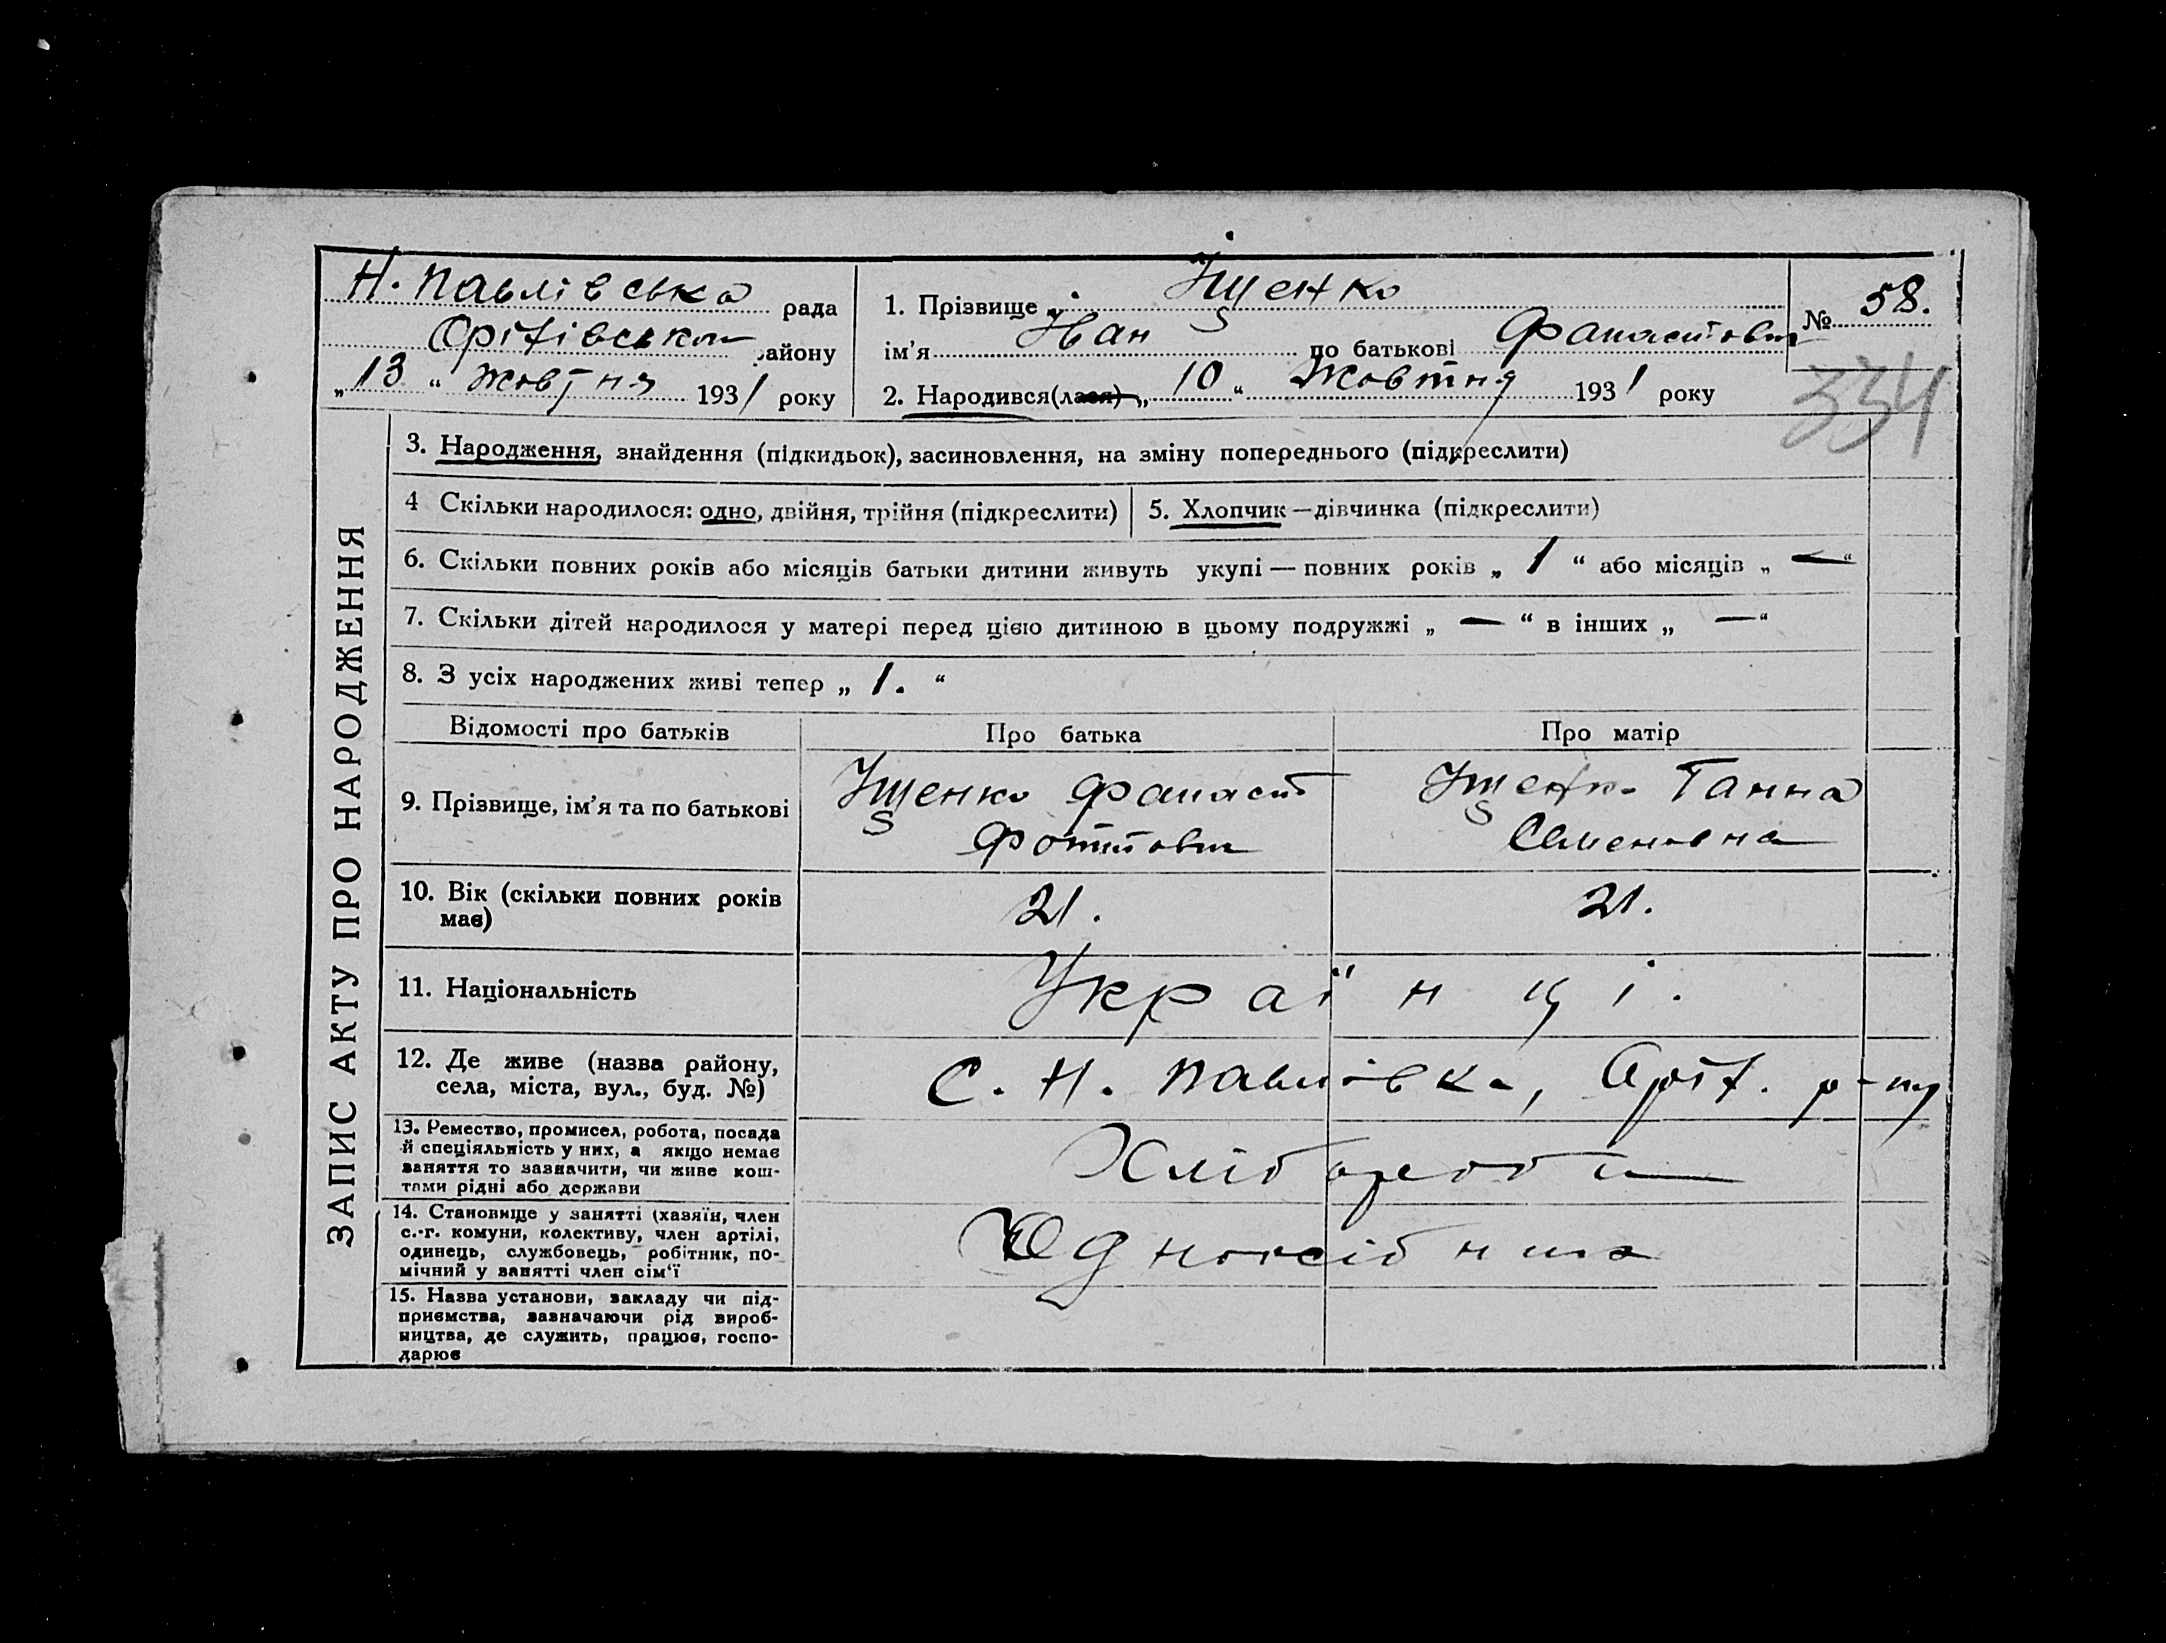 Н. Павлівська рада
району
„13“ Жовтня 1931 року
1. Прізвище Іщенко
ім’я Іван по батькові
2. Народився(лася) „10“ Жовтня 1931 року
№ 58.
334
ЗАПИС АКТУ ПРО НАРОДЖЕННЯ
3. Народження, знайдення (підкидьок), засиновлення, на зміну попереднього (підкреслити)
4 Скільки народилося: одно, двійня, трійня (підкреслити)
5. Хлопчик—дівчинка (підкреслити)
6. Скільки повних років або місяців батьки дитини живуть укупі — повних років „ 1 “ або місяців „ — “
7. Скільки дітей народилося у матері перед цією дитиною в цьому подружжі „ — “ в інших „ — “
8. З усіх народжених живі тепер „ 1. “
Відомості про батьків
Про батька
Про матір
9. Прізвище, ім’я та по батькові
Іщенко
Іщенко Ганна
Семеновна
10. Вік (скільки повних років
має)
21.
21.
11. Національність
Українці.
12. Де живе (назва району,
села, міста, вул., буд. №)
С. Н. Павлівка, р-ну
13. Ремество, промисел, робота, посада
й спеціяльність у них, а якщо немає
заняття то зазначити, чи живе кош-
тами рідні або держави
Хлібороби
14. Становище у занятті (хазяїн, член
с.-г. комуни, колективу, член артілі,
одинець, службовець, робітник, по-
мічний у занятті член сім’ї
15. Назва установи, закладу чи під-
приємства, зазначаючи рід вироб-
ництва, де служить, працює, госпо-
дарює